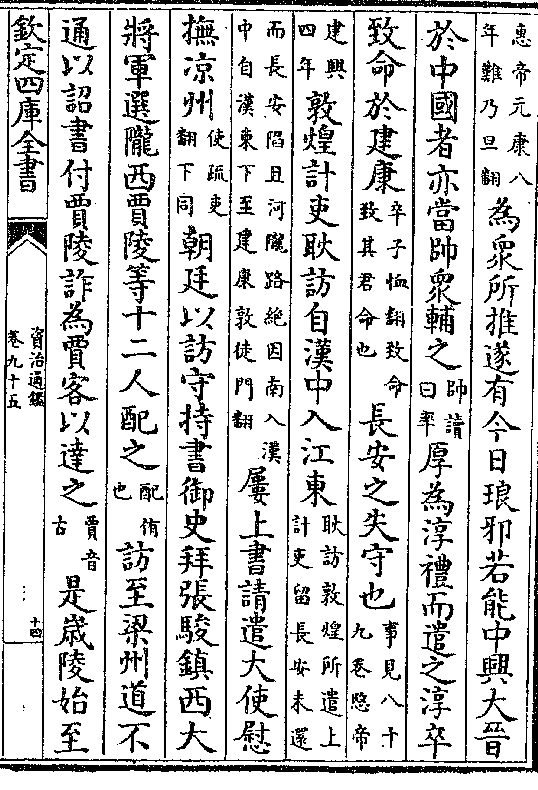 惠帝元康八年難乃旦翻為衆所推遂有今日琅邪若能中興大晉
於中國者亦當帥衆輔之帥讀曰率厚為淳禮而遣之淳卒
致命於建康卒子恤翻致命致其君命也長安之失守也事見八十九卷愍帝
建興四年敦煌計吏耿訪自漢中入江東耿訪敦煌所遣上計吏留長安未還
而長安陷且河隴路絶因南入漢中自漢東下至建康敦徒門翻屢上書請遣大使慰
撫凉州使疏吏翻下同朝廷以訪守持書御史拜張駿鎮西大
將軍選隴西賈陵等十二人配之配侑也訪至梁州道不
通以詔書付賈陵詐為賈客以達之賈音古是歲陵始至
欽定四庫全書
資治通鑑
卷九十五
十四